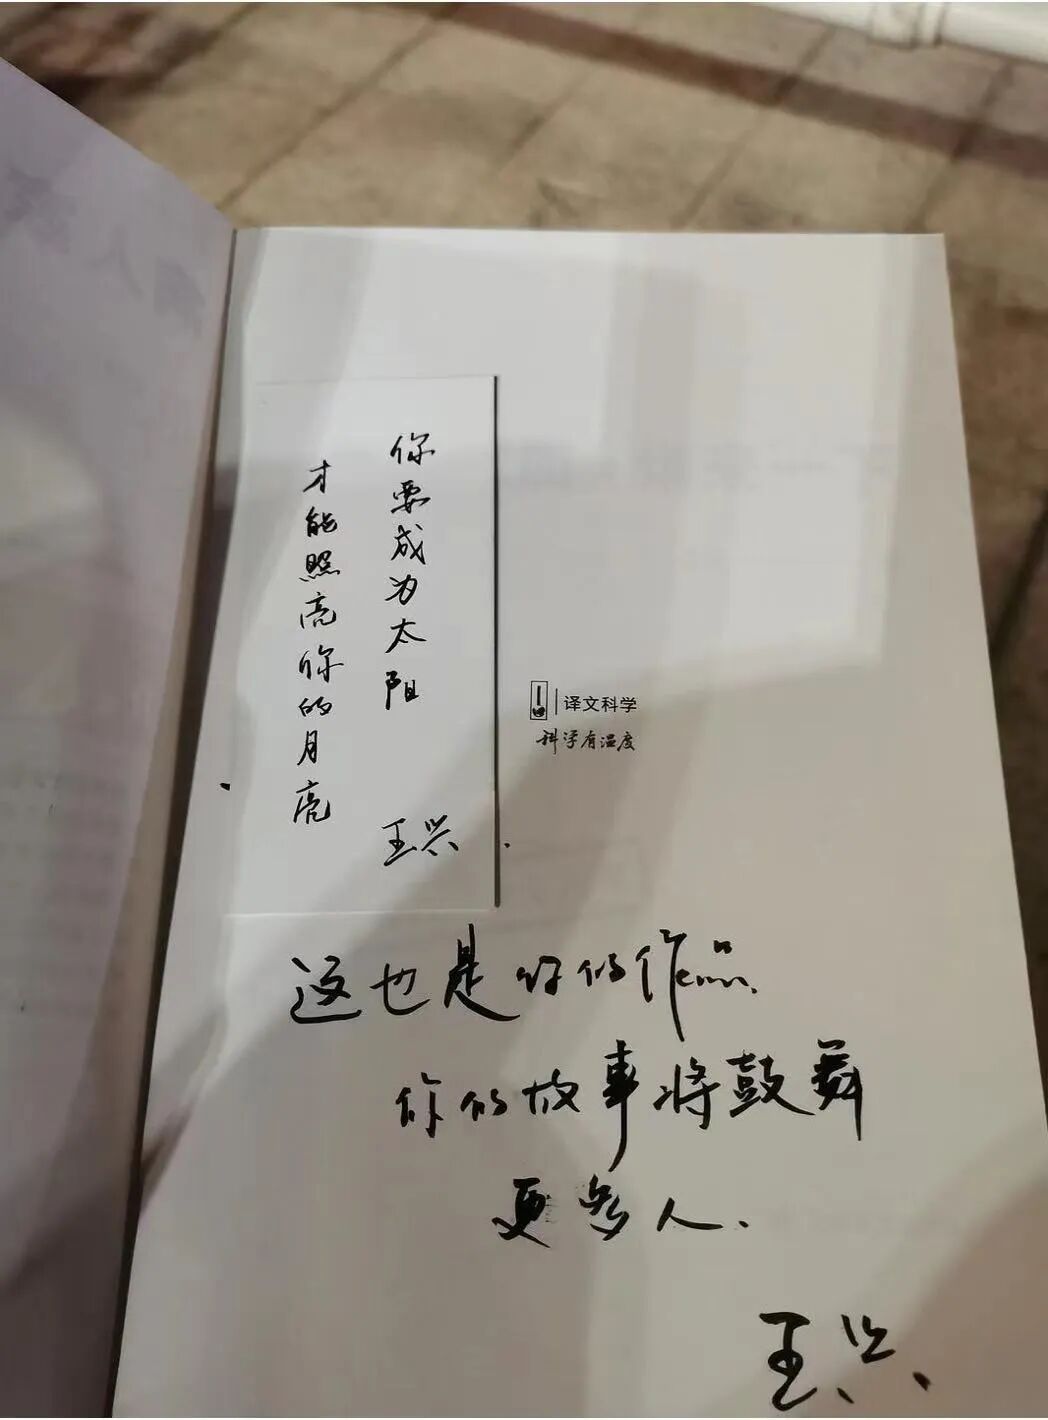 你要成为太阳
才能照亮你的月亮
王兴
译文科学
科学有温度
这也是你的作品.
你的故事将鼓舞
更多人.
王兴